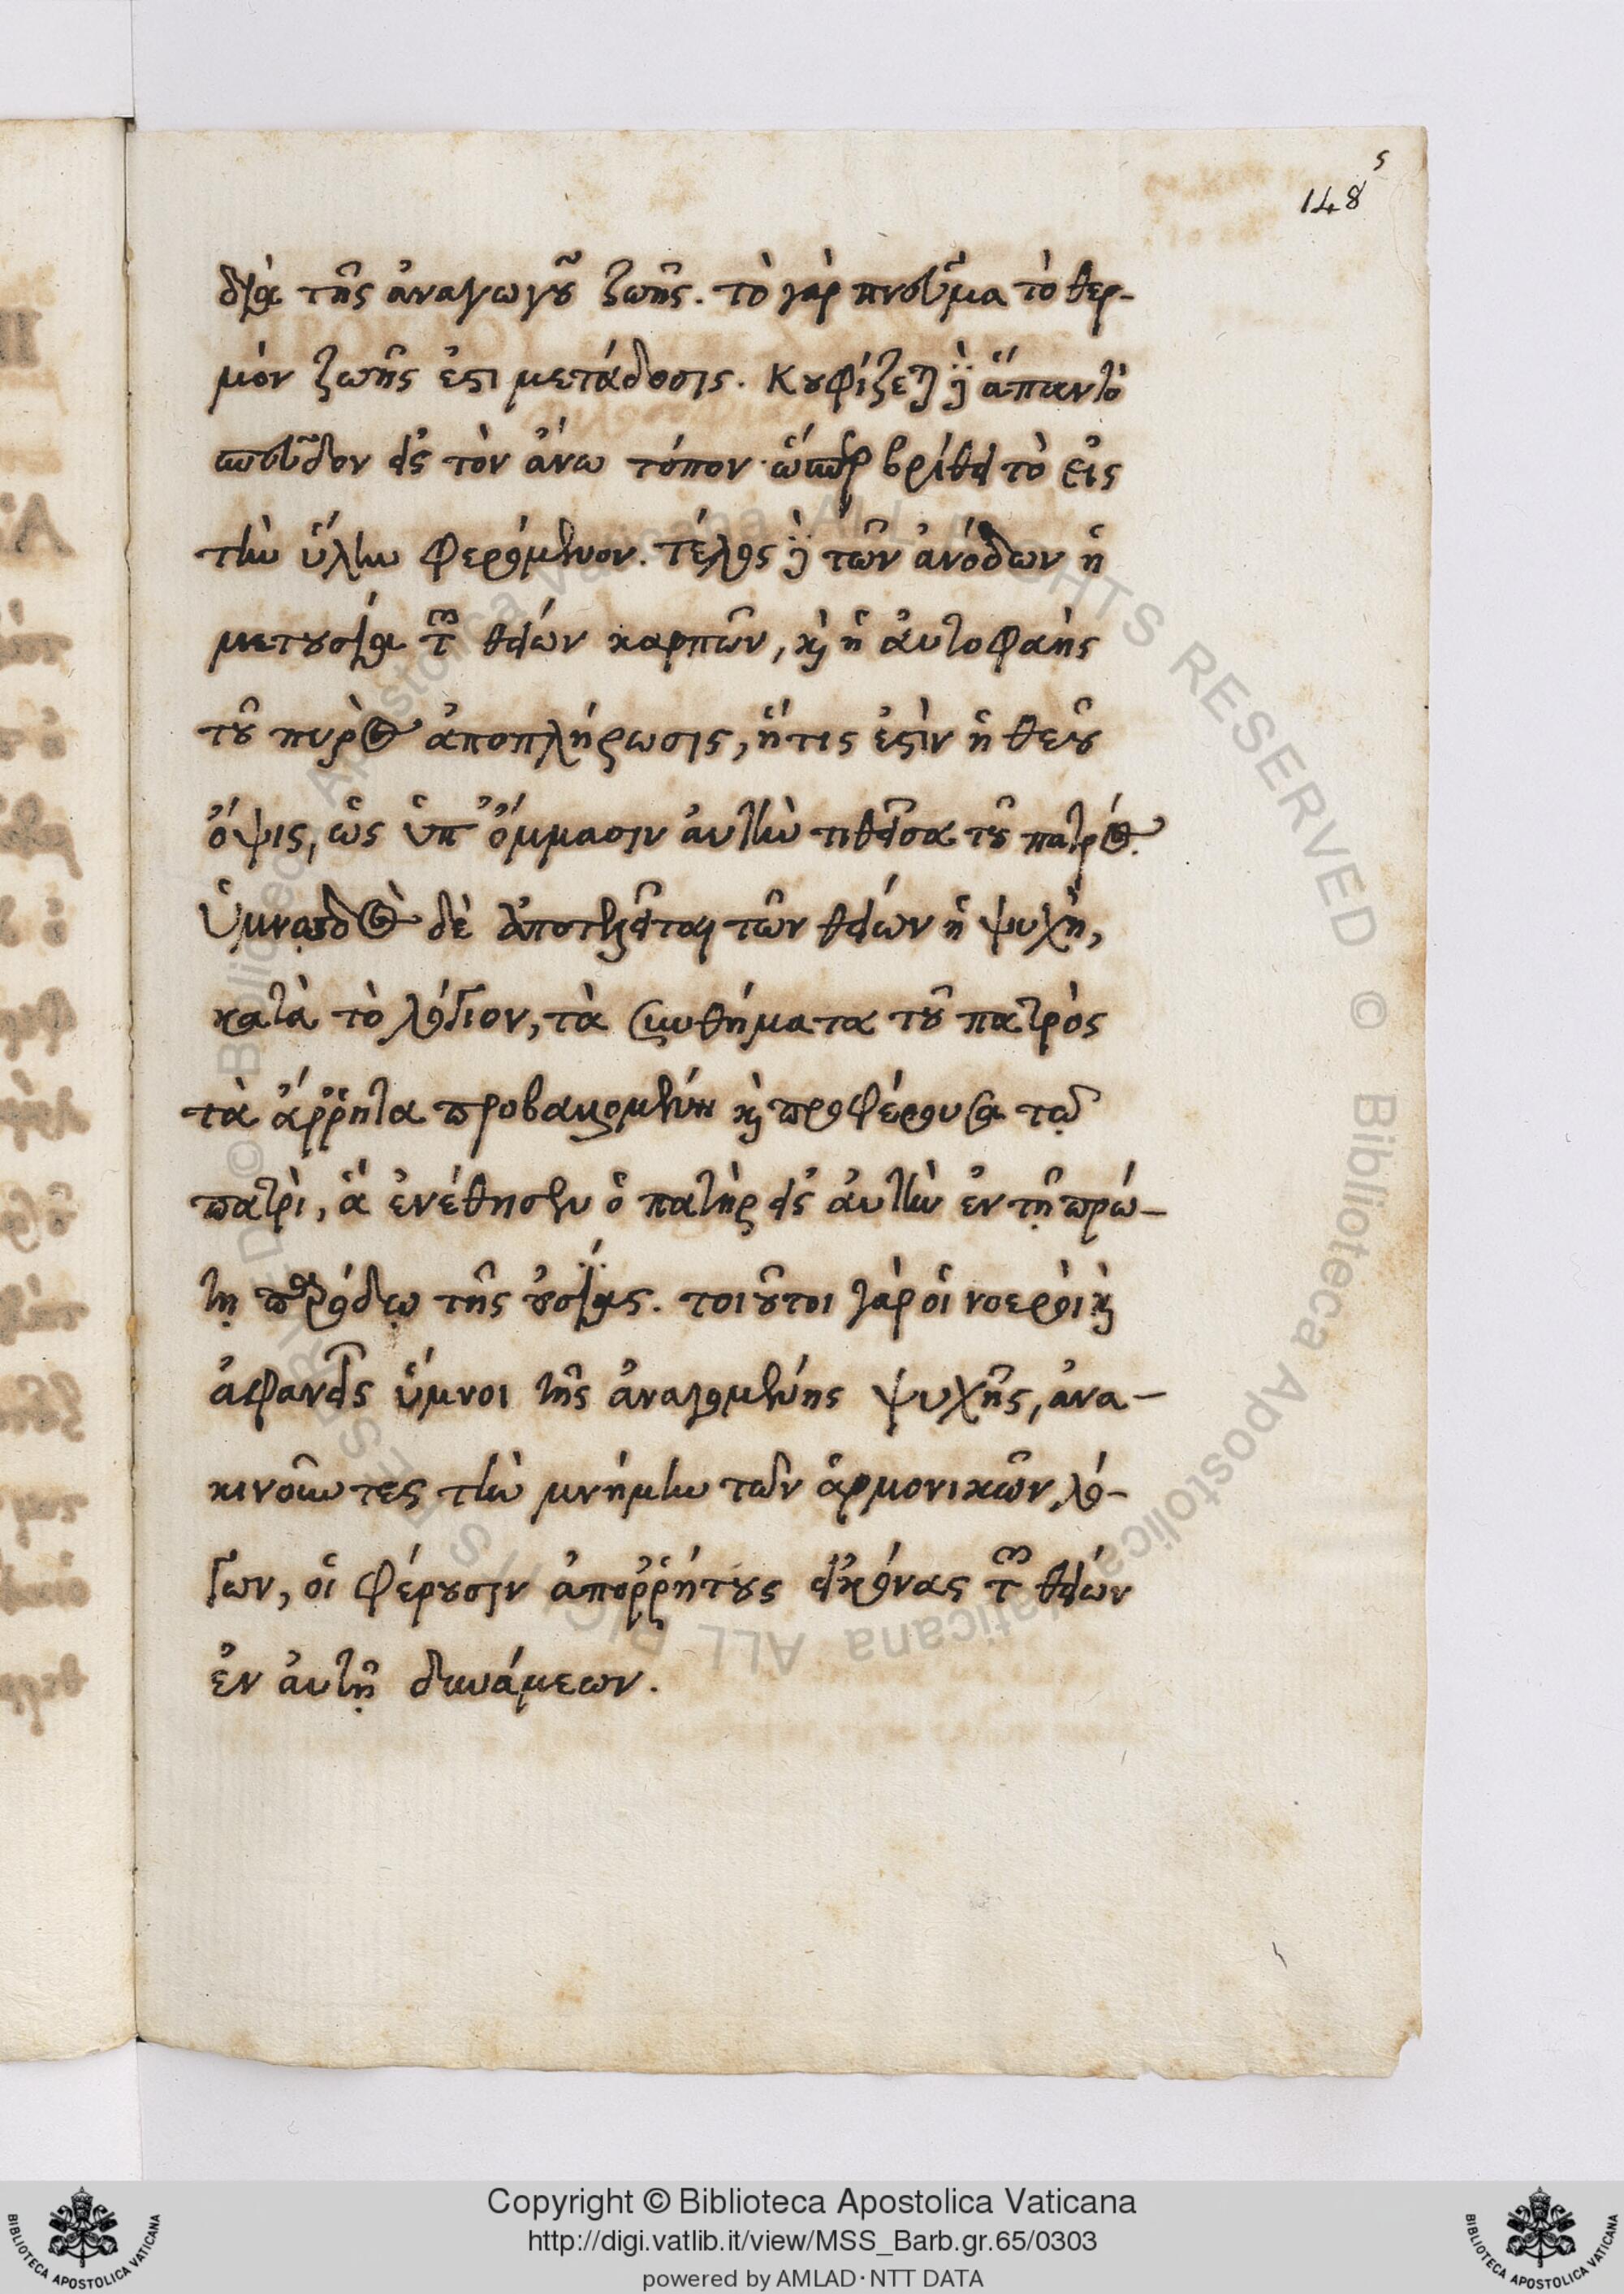 5
148
διὰ τῆς ἀναγωγοῦ ζωῆς. τὸ γὰρ πνεῦμα τὸ θερ-
μὸν ζωῆς ἐστι μετάδοσις. κουφίζεται δὲ ἅπαν τὸ
σπεῦδον εἰς τὸν ἄνω τόπον ὥσπερ βρίθει τὸ εἰς
τὴν ὕλην φερόμενον. τέλος δὲ τῶν ἀνόδων ἡ
μετουσία τῶν θείων καρπῶν, καὶ ἡ αὐτοφαὴς
τοῦ πυρὸς ἀποπλήρωσις, ἥτις ἐστὶν ἡ θεοῦ
ὄψις, ὡς ὑπ' ὄμμασιν αὐτὴν τιθεῖσα τοῦ πατρός.
Ὑμνῳδὸς δὲ ἀποτελεῖται τῶν θείων ἡ ψυχὴ,
κατὰ τὸ λόγιον, τὰ συνθήματα τοῦ πατρὸς
τὰ ἄῤῥητα προβαλλομένη καὶ προφέρουσα τῷ
πατρὶ, ἃ ἐνέθησεν ὁ πατὴρ εἰς αὐτὴν ἐν τῇ πρώ-
τῃ παρόδῳ τῆς οὐσίας. τοιοῦτοι γὰρ οἱ νοεροὶ καὶ
ἀφανεῖς ὕμνοι τῆς ἀναγομένης ψυχῆς, ἀνα-
κινοῦντες τὴν μνήμην τῶν ἁρμονικῶν λό-
γων, οἳ φέρουσιν ἀποῤῥήτους εἰκόνας τῶν θείων
ἐν αὐτῇ δυνάμεων.
© Biblioteca Apostolica Vaticana ALL RIGHTS RESERVED
© Biblioteca Apostolica Vaticana ALL RIGHTS RESERVED
Copyright © Biblioteca Apostolica Vaticana
http://digi.vatlib.it/view/MSS_Barb.gr.65/0303
powered by AMLAD·NTT DATA
BIBLIOTECA APOSTOLICA VATICANA
BIBLIOTECA APOSTOLICA VATICANA